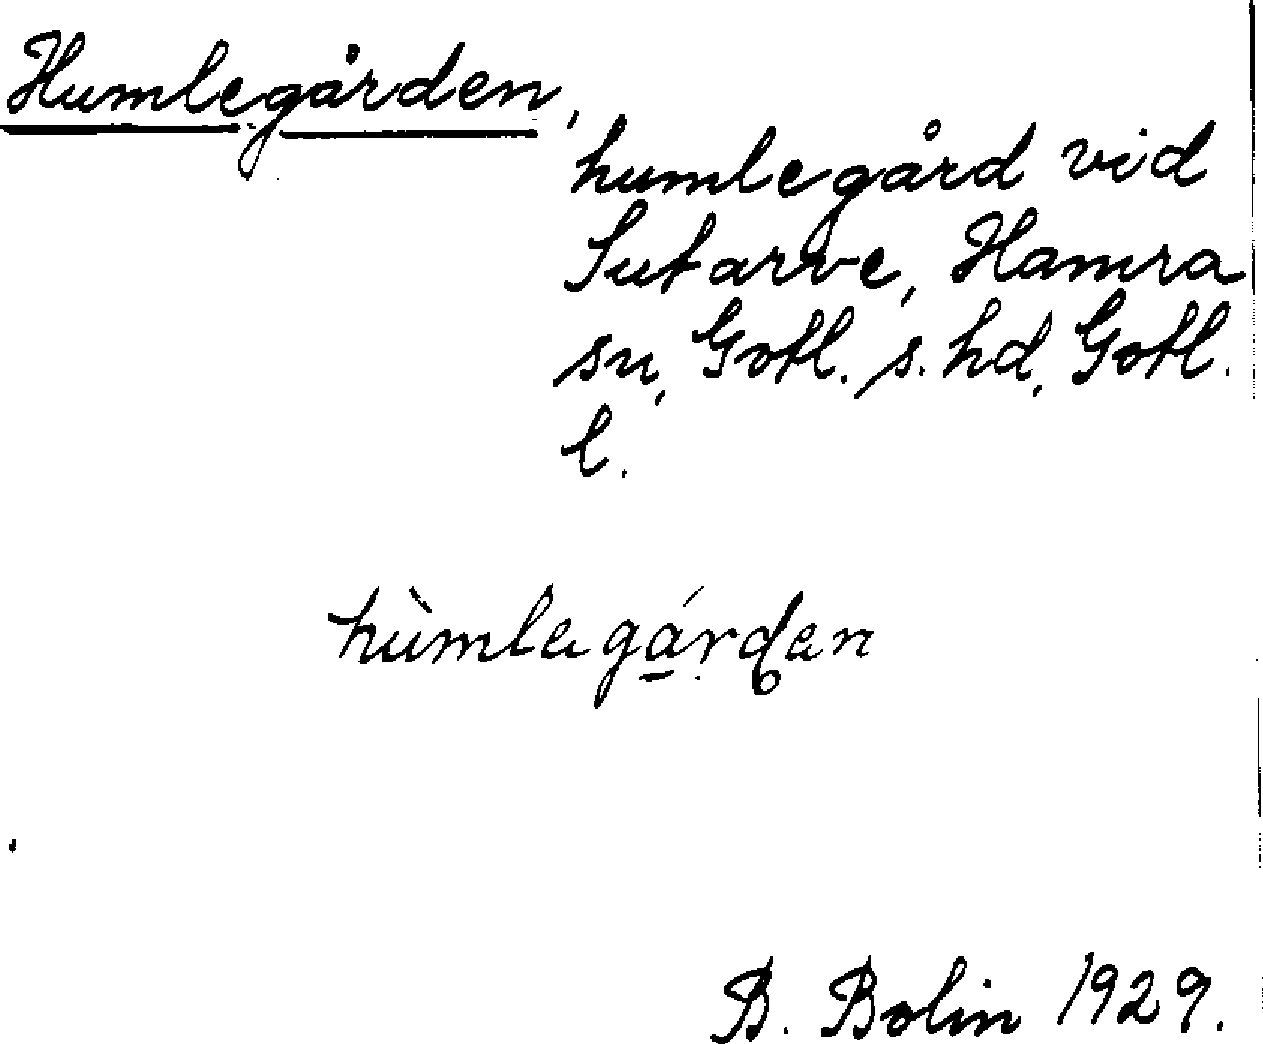 Humlegården,
humlegård vid
Sutarve, Hamra
sn, Gotl. s. hd, Gotl.
l.
hùmlegárden
B. Bolin 1929.